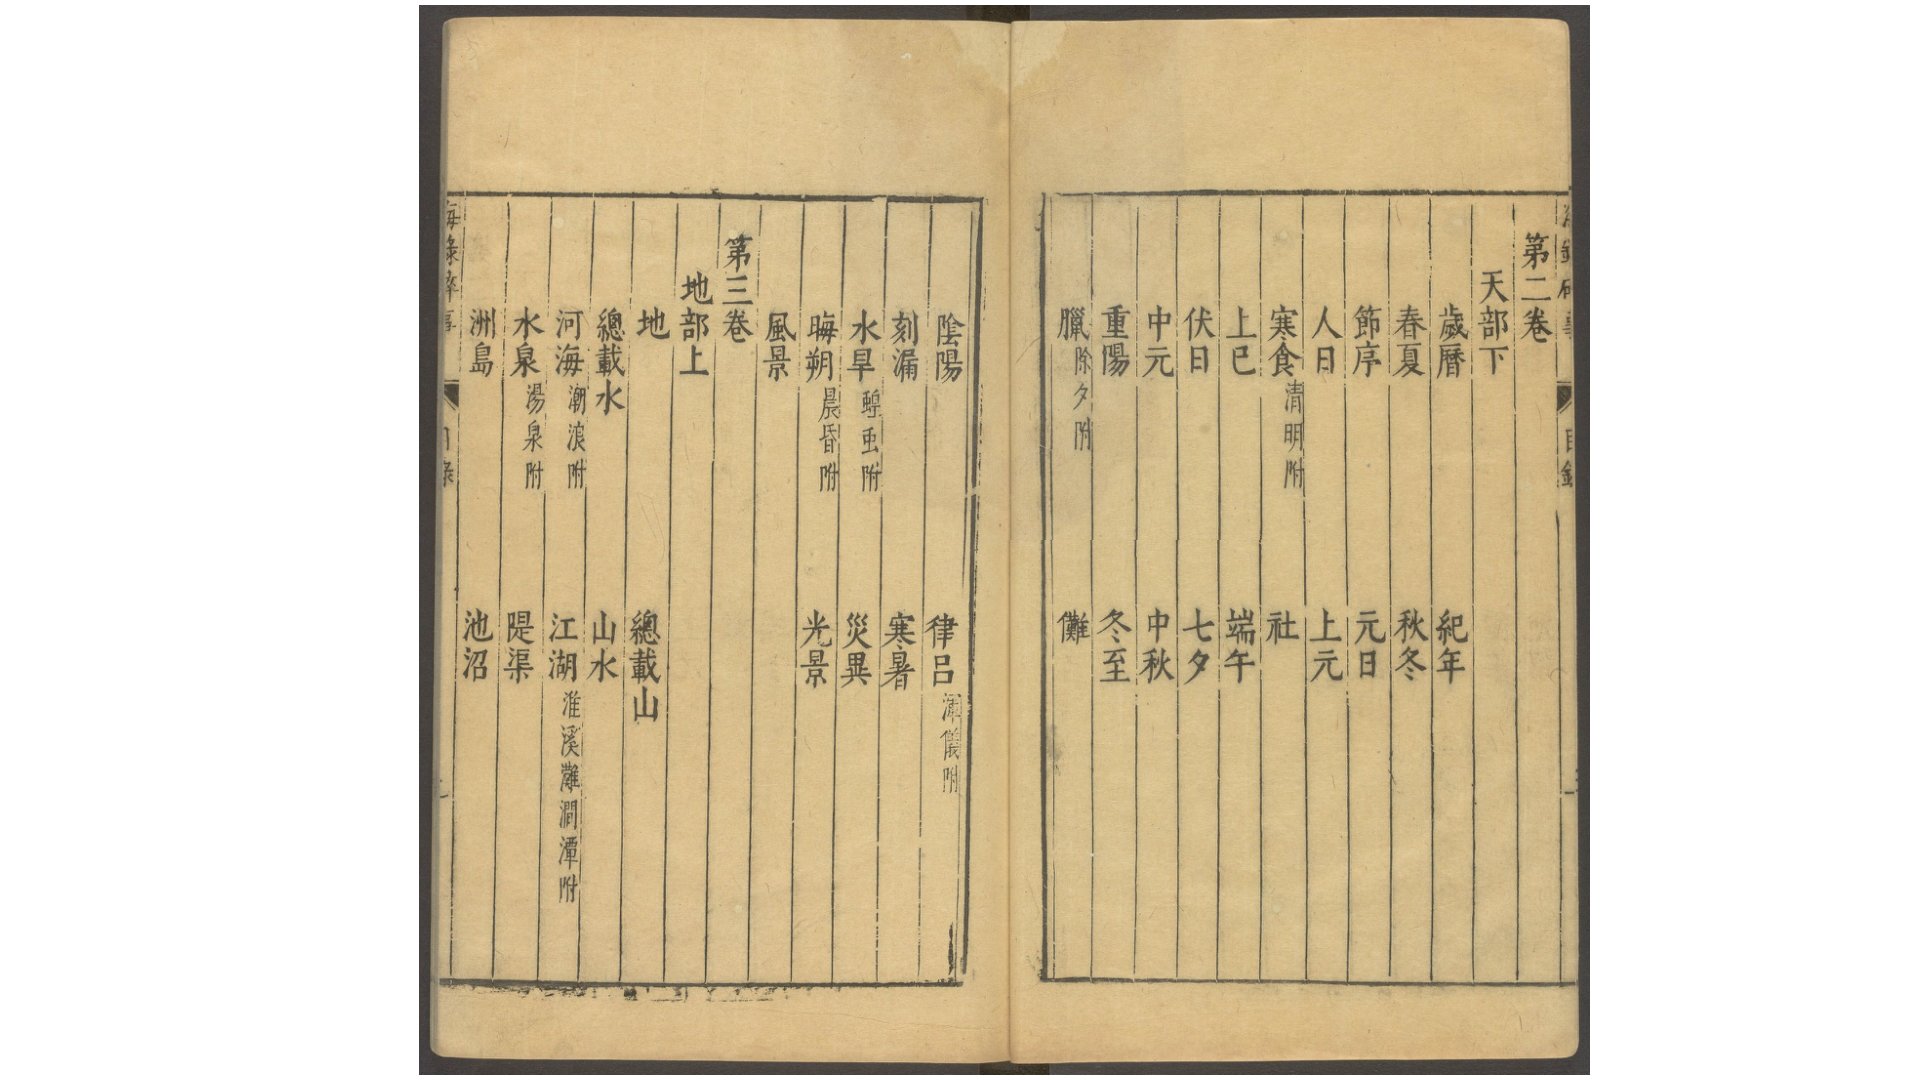 第二卷
天部下
歲曆 紀年
春夏 秋冬
節序 元日
人日 上元
寒食 清明附 社
上巳 端午
伏日 七夕
中元 中秋
重陽 冬至
臘 除夕附 儺
陰陽 律呂 渾儀附
刻漏 寒暑
水旱 蝗虫附 災異
晦朔 晨昏附 光景
風景
第三卷
地部上
地 總載山
總載水 山水
河海 潮浪附 江湖 淮溪灘澗潭附
水泉 湯泉附 隄渠
洲島 池沼
海錄碎事 目錄